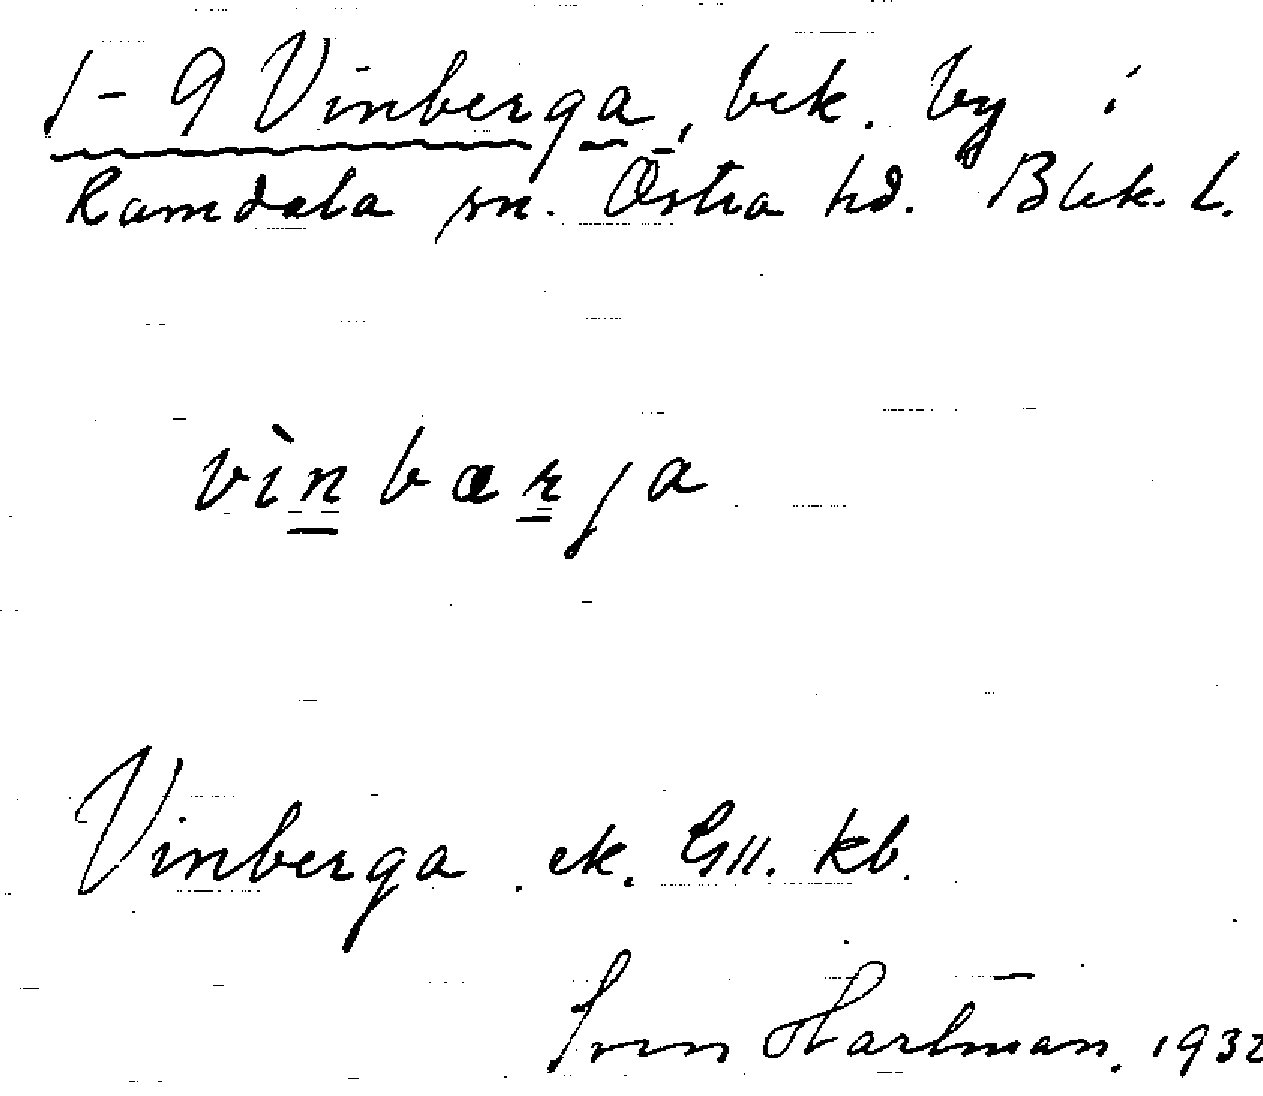 1-9 Vinberga, bek. by i
Ramdala sn. Östra hd. Blek. l.
vìnbærja
Vinberga ek. Gll. kb.
Sven Hartman. 1932